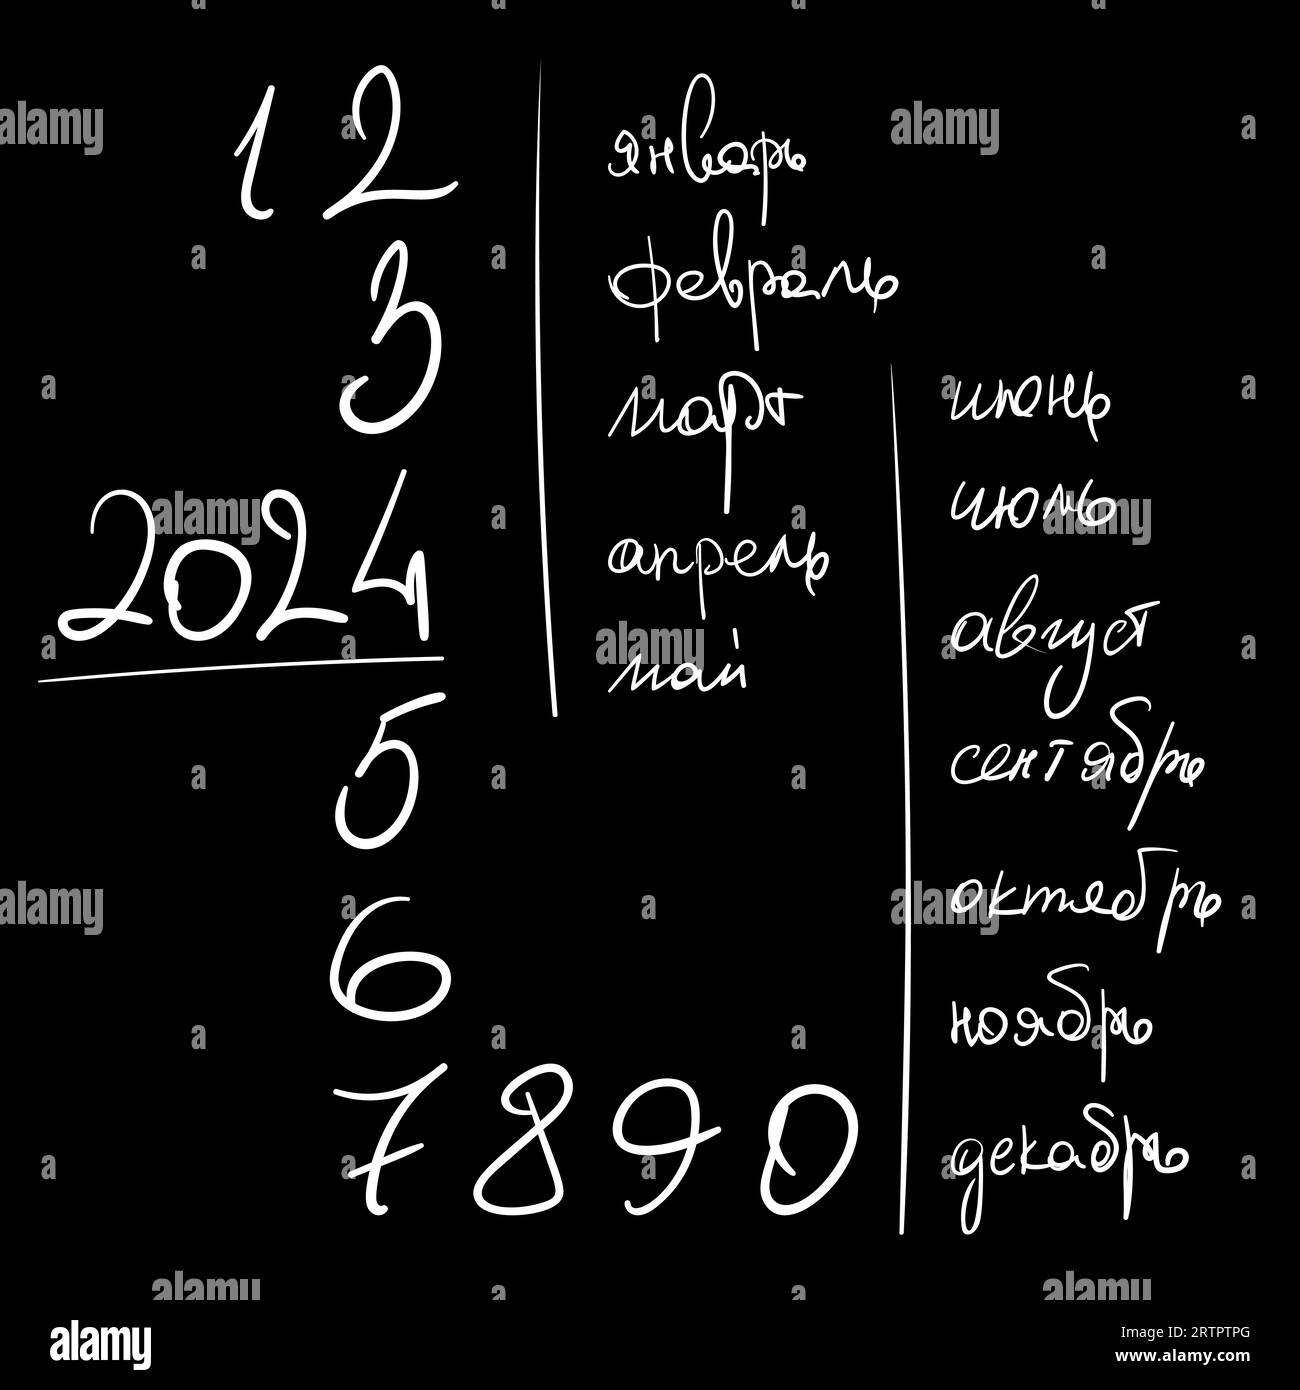 1 2
3
2024
5
6
7 8 9 0
январь
февраль
март
апрель
май
июнь
июль
август
сентябрь
октябрь
ноябрь
декабрь
alamy
a
alamy
Image ID: 2RTPTPG
www.alamy.com